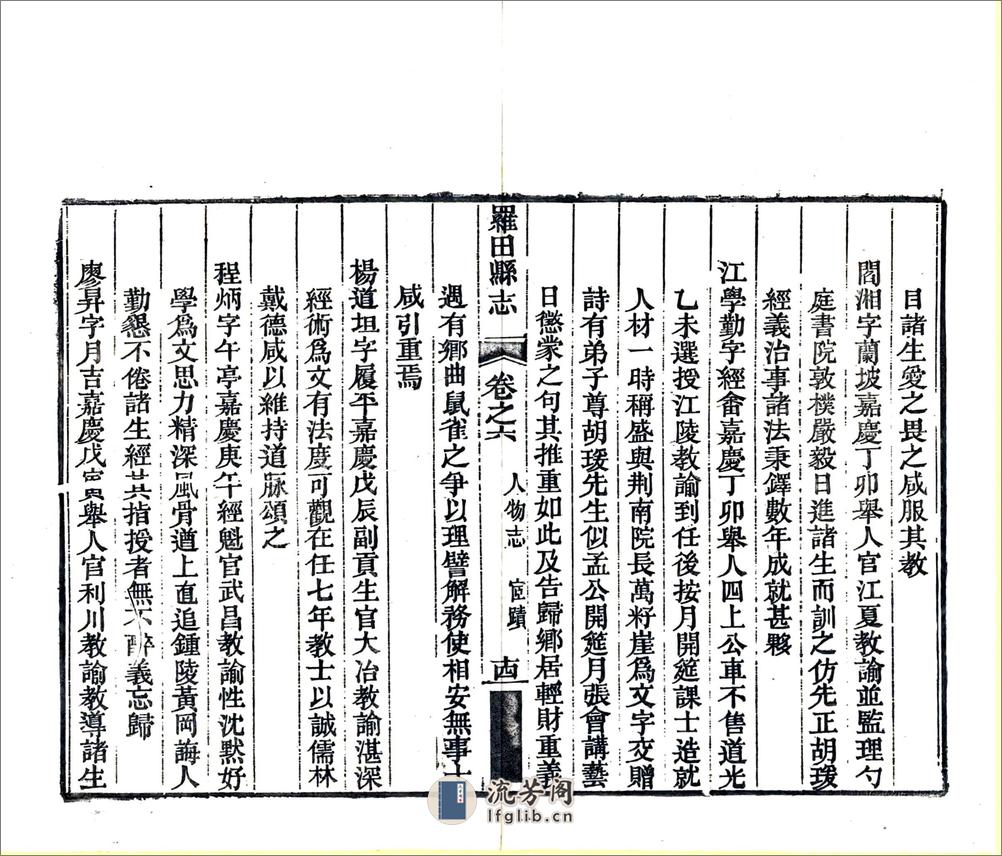 目諸生愛之畏之咸服其教
閻湘字蘭坡嘉慶丁卯舉人官江夏教諭並監理勺
庭書院敦樸嚴毅日進諸生而訓之仿先正胡瑗
經義治事諸法秉鐸數年成就甚夥
江學勤字經畬嘉慶丁卯舉人四上公車不售道光
乙未選授江陵教諭到任後按月開筵課士造就
人材一時稱盛與荆南院長萬籽崖爲文字交贈
詩有弟子尊胡瑗先生似孟公開筵月張會講藝
日懲蒙之句其推重如此及告歸鄉居輕財重義
羅田縣志
卷之六
人物志 宦蹟
遇有鄉曲鼠雀之爭以理譬解務使相安無事士
咸引重焉
楊道坦字履平嘉慶戊辰副貢生官大冶教諭湛深
經術爲文有法度可觀在任七年教士以誠儒林
戴德咸以維持道脉頌之
程炳字午亭嘉慶庚午經魁官武昌教諭性沈默好
學爲文思力精深風骨遒上直追鍾陵黃岡誨人
勤懇不倦諸生經其指授者無不醉義忘歸
廖昇字月吉嘉慶戊寅舉人官利川教諭教導諸生
流芳阁
lfglib.cn